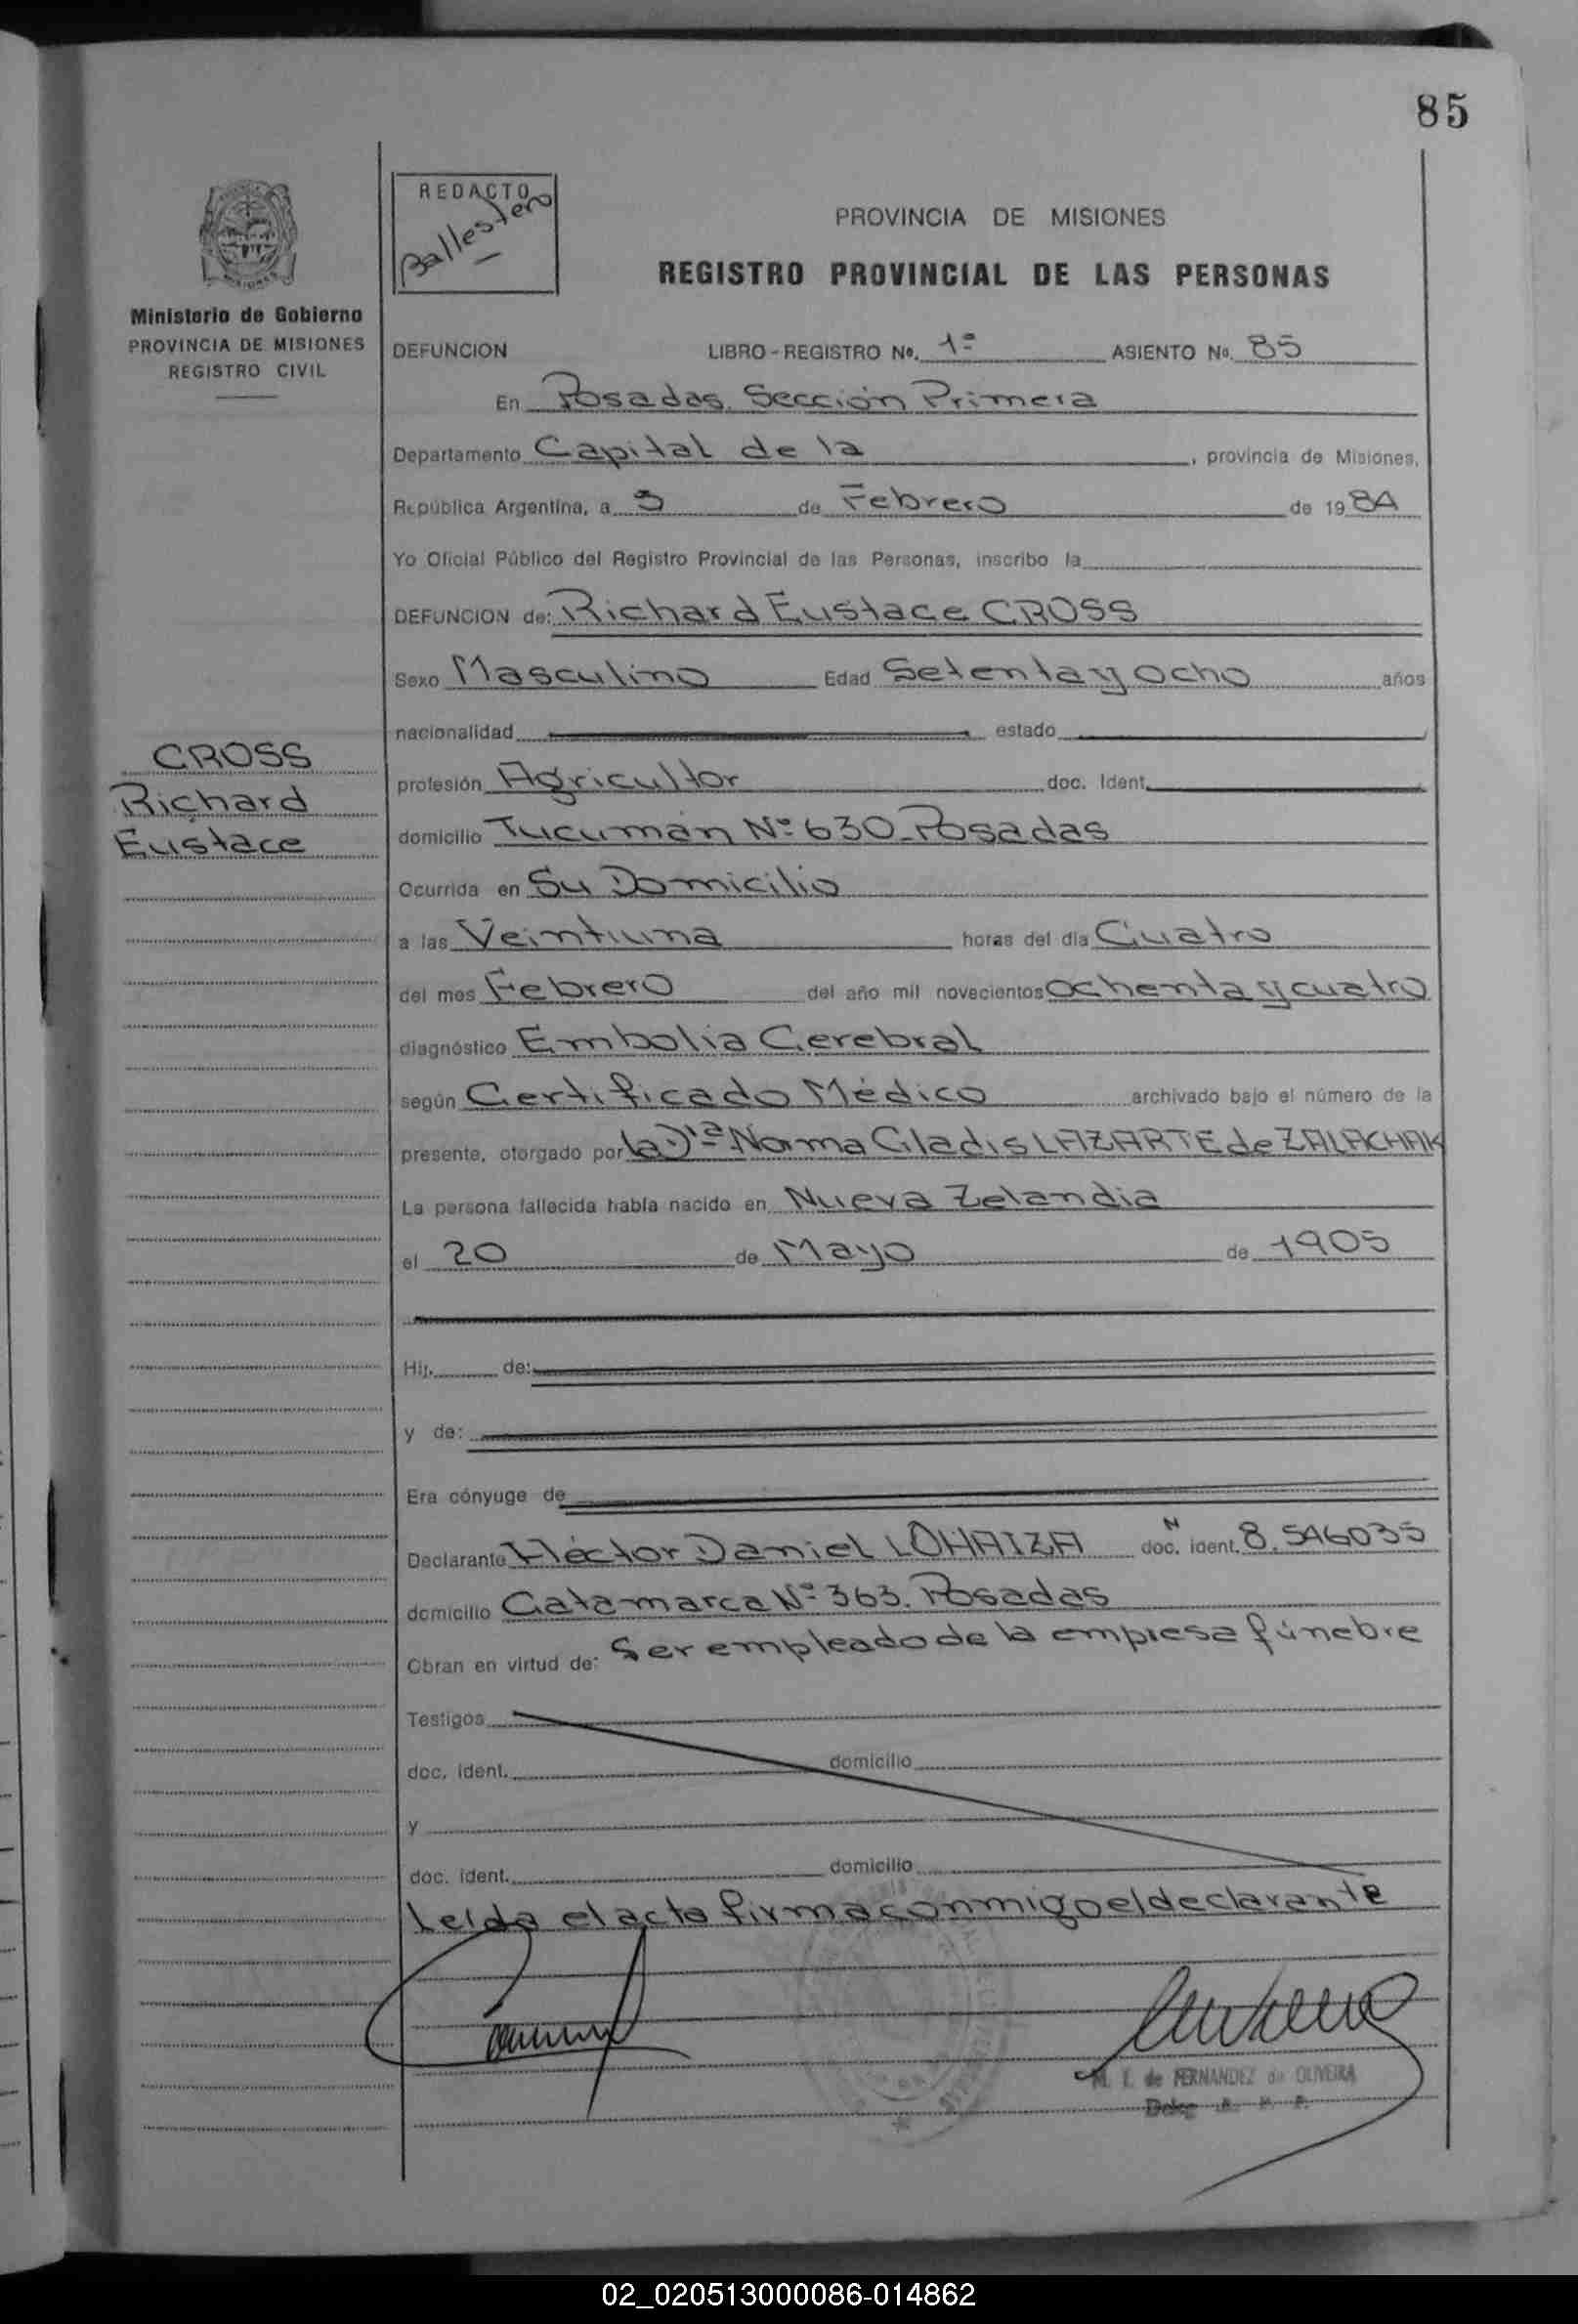 85
REDACTO
Ballestero
PROVINCIA DE MISIONES
REGISTRO PROVINCIAL DE LAS PERSONAS
Ministerio de Gobierno
PROVINCIA DE MISIONES
REGISTRO CIVIL
DEFUNCION LIBRO-REGISTRO No. 1º ASIENTO No. 85
En Posadas. Sección Primera
Departamento Capital de la, provincia de Misiones,
República Argentina, a 5 de Febrero de 1984
Yo Oficial Público del Registro Provincial de las Personas, inscribo la
DEFUNCION de: Richard Eustace CROSS
Sexo Masculino Edad Setenta y Ocho años
nacionalidad estado
CROSS
Richard
Eustace
profesión Agricultor doc. Ident.
domicilio Tucumán Nº 630 Posadas
Ocurrida en Su Domicilio
a las Veintiuna horas del día Cuatro
del mes Febrero del año mil novecientos Ochenta y cuatro
diagnóstico Embolia Cerebral
según Certificado Médico archivado bajo el número de la
presente, otorgado por la Drª Norma Gladis LAZARTE de ZALACHAK
La persona fallecida había nacido en Nueva Zelandia
el 20 de Mayo de 1905
Hij. de:
y de:
Era cónyuge de
Declarante Héctor Daniel LOHAIZA doc. ident. 8.546035
domicilio Catamarca Nº 363. Posadas
Obran en virtud de: Ser empleado de la empresa fúnebre
Testigos
doc. ident. domicilio
y
doc. ident. domicilio
Leída el acta firma conmigo el declarante
M. I. de FERNANDEZ de OLIVEIRA
02_020513000086-014862